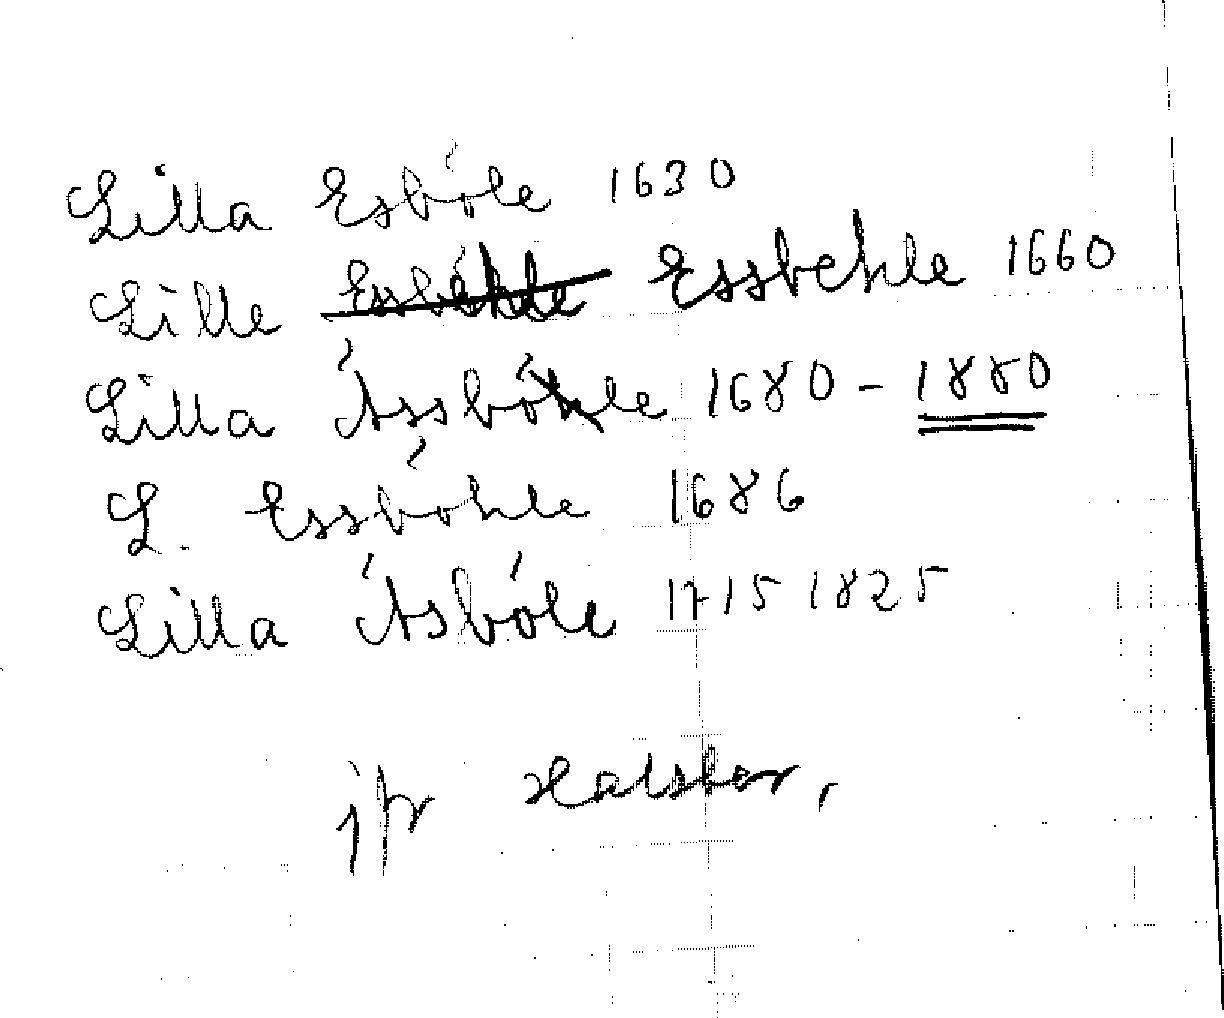 Lilla Esböle 1630
Lille Essbehle 1660
Lilla Åssböle 1680 – 1880
L. Essböhle 1686
Lilla Åsböle 1715 1825
jfr